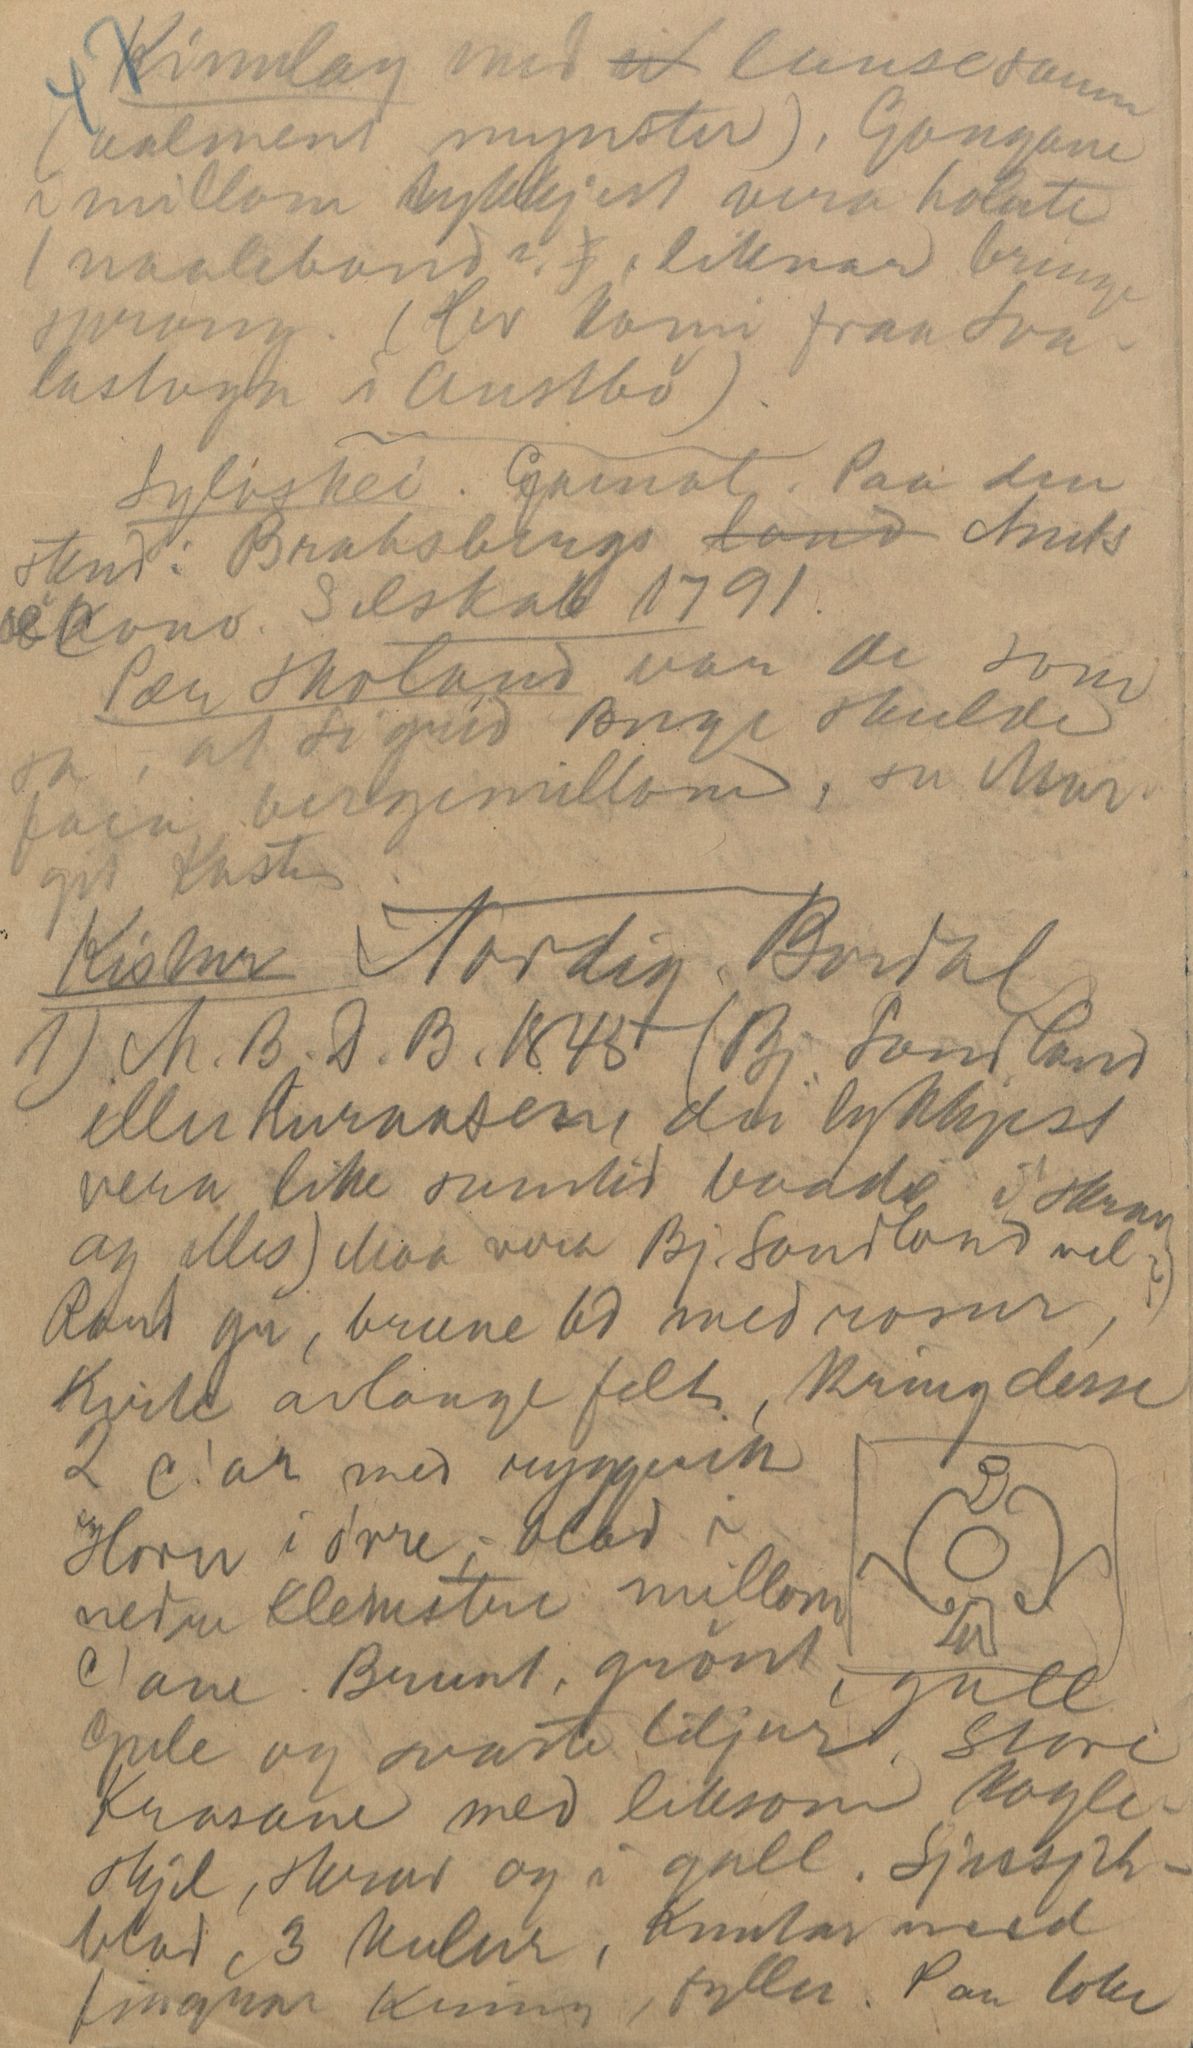 47
Kinnlag med et lausesaum
(aalment mynster), Gongane
imillom tykkjest vera holute
(naalebond o.fl, liknar bringe
sprong. (Her komi fraa Sva-
lastogn i Austbø).
Sylvskei. Gamal. Paa den
stend: Bratsbergs land Amts
økono. Selskab 1791.
Pær Skoland var de som
sa, at Signid Bryge skulde
faia bergjemillom, sa Mar-
git Kaste
Kistur Nordig. Bordal
1) M. B. D. B. 1848 (Bj. Sandland
eller Kuraasen, dei tykkjest
vera like sumtid baade i skrav
og elles) Maa vera Bj. Sandland vel?)
Raud gr, brune bd med rosur,
Kvite avlange felt, Kring desse
2 C'ar med ryggvek
Horn i øvre, blad i
nedre Klemstre millom
C'ane. Brunt, grønt, i gull
Gule og svarte liljur. Store
Krosane med liksom Kogle-
skjel, skrav og i gull. Sjusjik-
blad, 3 kulur, Knutar med
fingrar Kring, syller. Paa loke